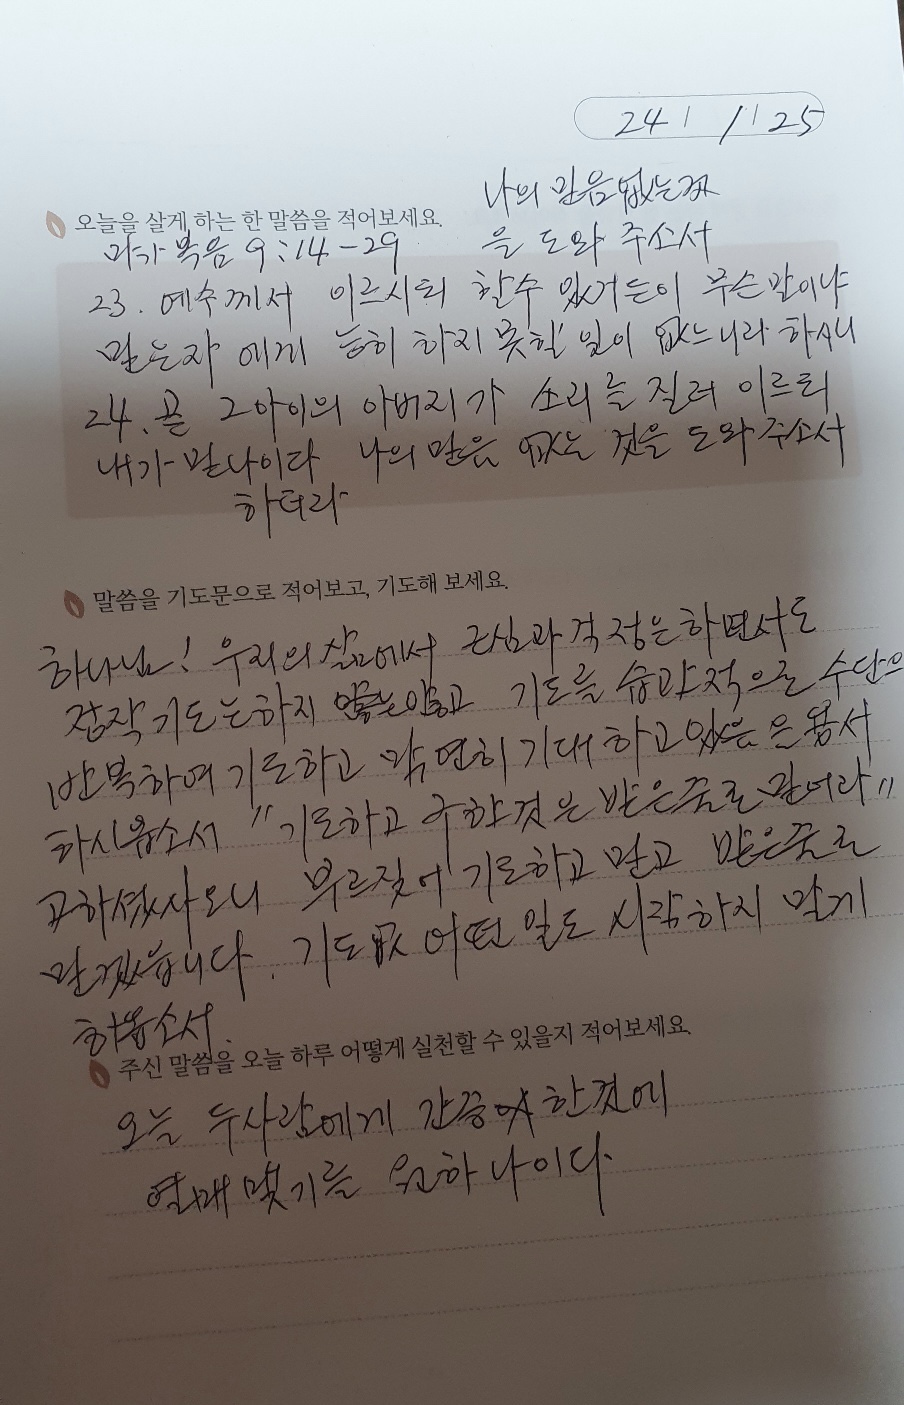 24 1 / 1 25
나의 믿음없는것
을 도와 주소서
오늘을 살게 하는 한 말씀을 적어보세요.
마가복음 9:14-29
23. 예수께서 이르시되 할수 있거든이 무슨말이냐
믿는자 에게 능히 하지 못할 일이 없느니라 하시니
24. 곧 그아이의 아버지가 소리를 질러 이르되
내가 믿나이다 나의 믿음 없는 것을 도와 주소서
하더라
말씀을 기도문으로 적어보고, 기도해 보세요.
하나님! 우리의 삶에서 근심과 걱정은하면서도
정작 기도는하지 않고 기도를 습관적으로 수단으
반복하여 기도하고 막연히 기대하고있음 은 용서
하시옵소서 "기도하고 구한것은 받은줄로 믿어라"
고하셨사오니 부르짖어 기도하고 믿고 받은줄로
믿겠습니다. 기도없 어떤 일도 시작하지 말게
하옵소서.
주신 말씀을 오늘 하루 어떻게 실천할 수 있을지 적어보세요.
오늘 두사람에게 간증 한것에
열매 맺기를 원하나이다.